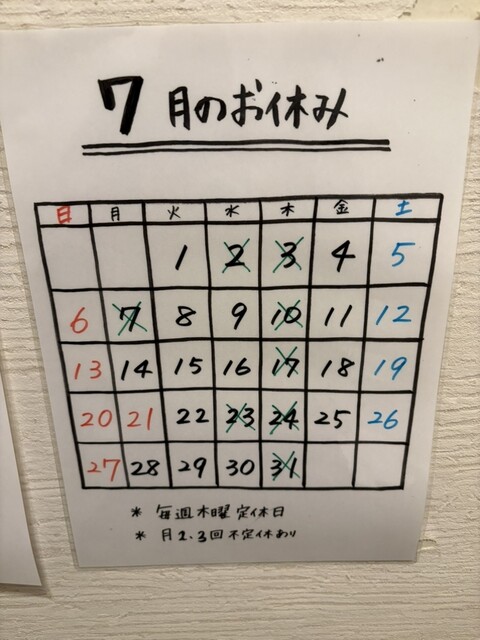 7月のお休み
日 月 火 水 木 金 土
1 2 3 4 5
6 7 8 9 10 11 12
13 14 15 16 17 18 19
20 21 22 23 24 25 26
27 28 29 30 31
* 毎週木曜定休日
* 月2.3回不定休あり